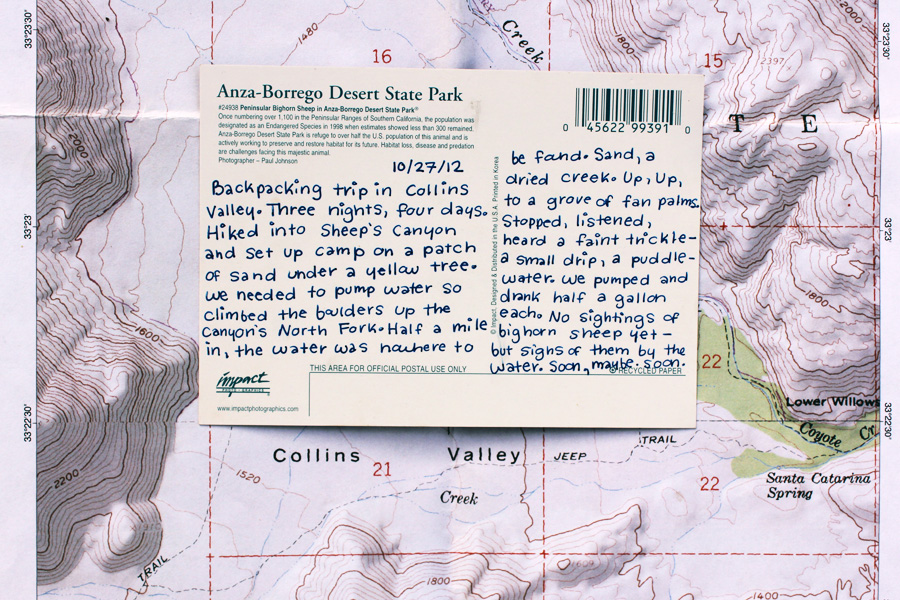 33°23'30"
1480
16
Creek
1800
2000
15
2397
33°23'30"
T E
2000
33°23'
1600
2200
33°22'30"
Anza-Borrego Desert State Park
#24938 Peninsular Bighorn Sheep in Anza-Borrego Desert State Park®
Once numbering over 1,100 in the Peninsular Ranges of Southern California, the population was
designated as an Endangered Species in 1998 when estimates showed less than 300 remained.
Anza-Borrego Desert State Park is refuge to over half the U.S. population of this animal and is
actively working to preserve and restore habitat for its future. Habitat loss, disease and predation
are challenges facing this majestic animal.
Photographer – Paul Johnson
0 45622 99391 0
10/27/12
Backpacking trip in Collins
Valley. Three nights, four days.
Hiked into Sheep's Canyon
and set up camp on a patch
of sand under a yellow tree.
We needed to pump water so
climbed the boulders up the
Canyon's North Fork. Half a mile
in, the water was nowhere to
© Impact, Designed & Distributed in the U.S.A. Printed in Korea
be found. Sand, a
dried creek. Up, Up,
to a grove of fan palms.
Stopped, listened,
heard a faint trickle-
a small drip, a puddle-
water. We pumped and
drank half a gallon
each. No sightings of
bighorn sheep yet –
but signs of them by the
water. Soon, maybe. soon.
impact
PHOTO-GRAPHICS
www.impactphotographics.com
THIS AREA FOR OFFICIAL POSTAL USE ONLY
RECYCLED PAPER
33°23'
1800
22
Lower Willows
Coyote Cr.
33°22'30"
Collins Valley
21
JEEP
TRAIL
1520
Creek
22
Santa Catarina
Spring
TRAIL
1800
1400